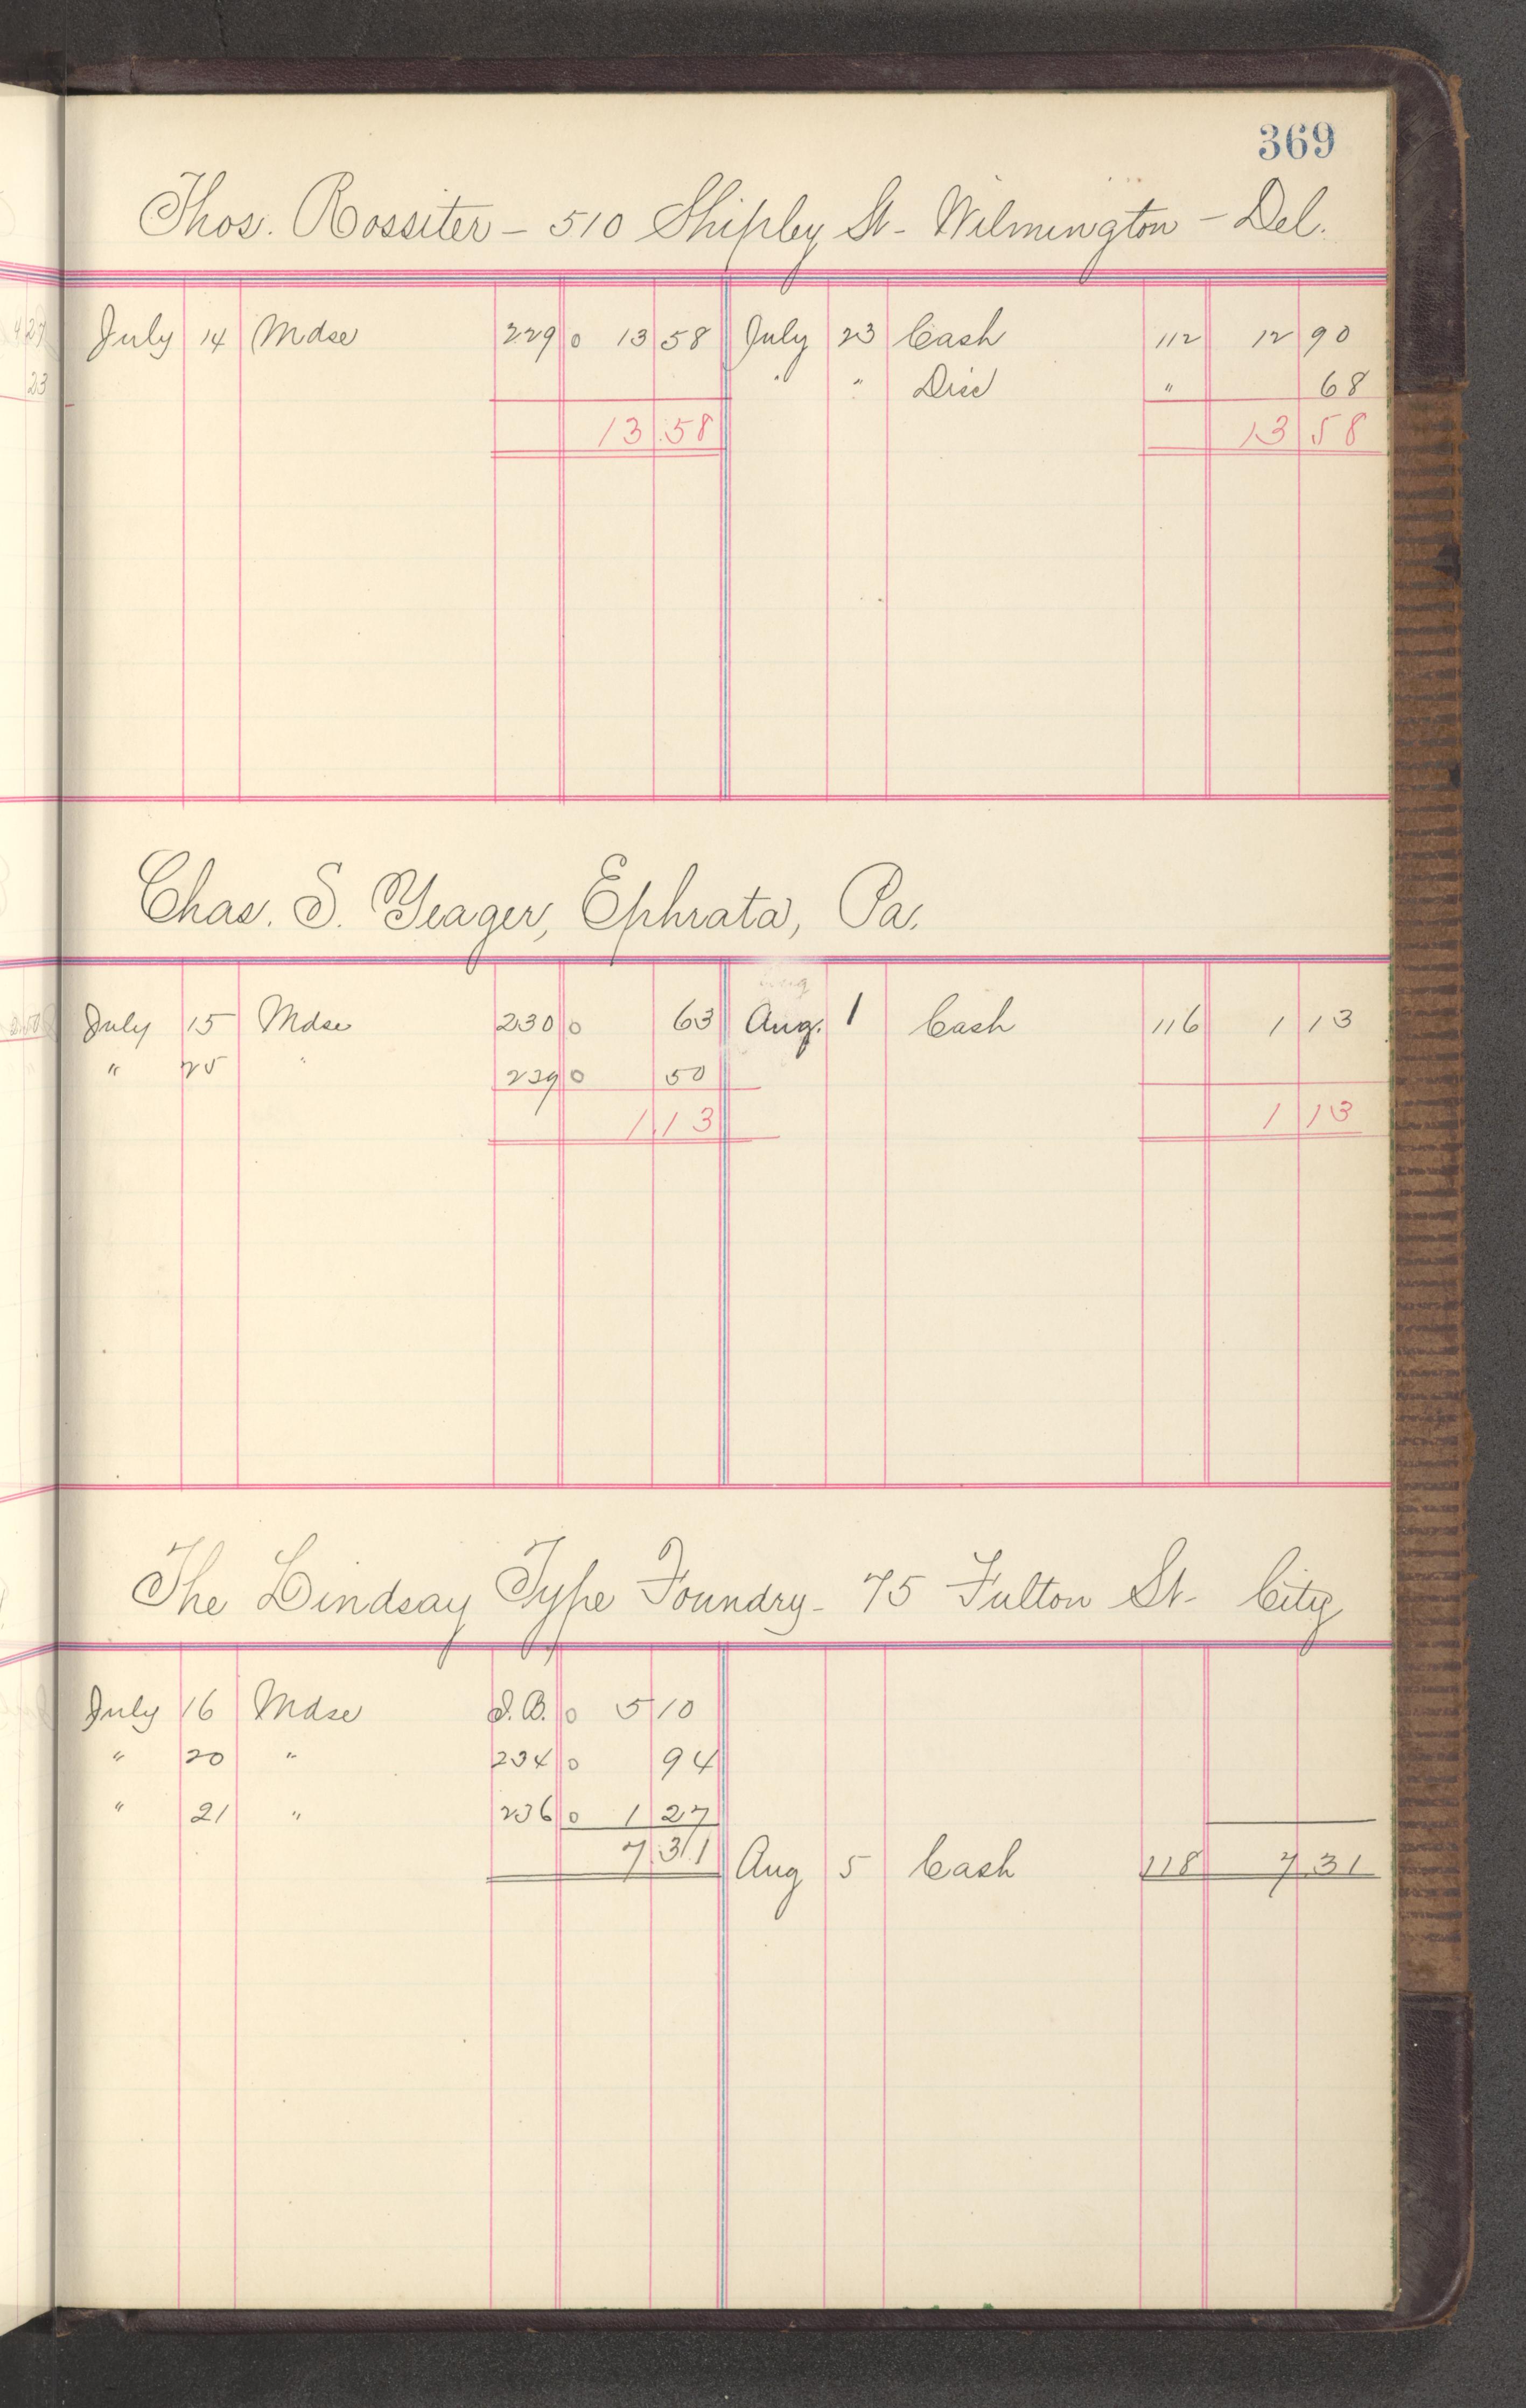 369
Thos. Rossiter – 510 Shipley St – Wilmington – Del.
July 14 Mdse 229 0 13 58 July 23 Cash 112 12 90
" " Disc " 68
13 58 13 58
Chas. S. Yeager, Ephrata, Pa.
July 15 Mdse 230 0 63 Aug. 1 Cash 116 1 13
" 25 " 239 0 50
1.13 1 13
The Lindsay Type Foundry – 75 Fulton St – City
July 16 Mdse I.B. 0 5 10
" 20 " 234 0 94
" 21 " 236 0 1 27
7.31 Aug 5 Cash 118 7.31